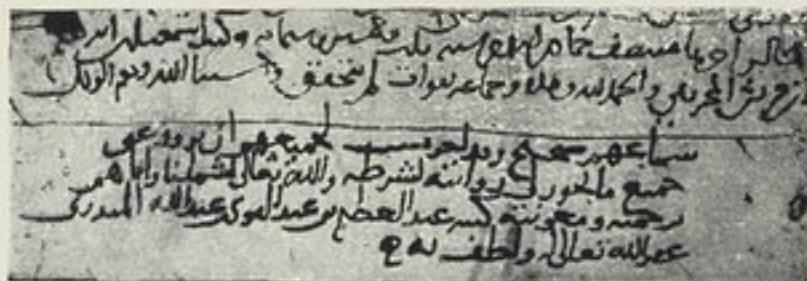 اخرها منتصف جمادى الاخره سنه ثلث وخمسين وستمايه وكتب اسمعيل بن ابر
قريش المخزومي والحمد لله وحده وجماعه بفوات لم يتحقق وحسبنا الله ونعم الوكيل
سماعهم صحيح وقد اجزت لجميعهم ان يرووا عني
جميع ما تجوز لي روايته بشرطه والله تعالى يشملنا واياهم
برحمته ومعونته كتبه عبد العظيم بن عبد القوي بن عبد الله المنذري
غفر الله تعالى له ولطف به